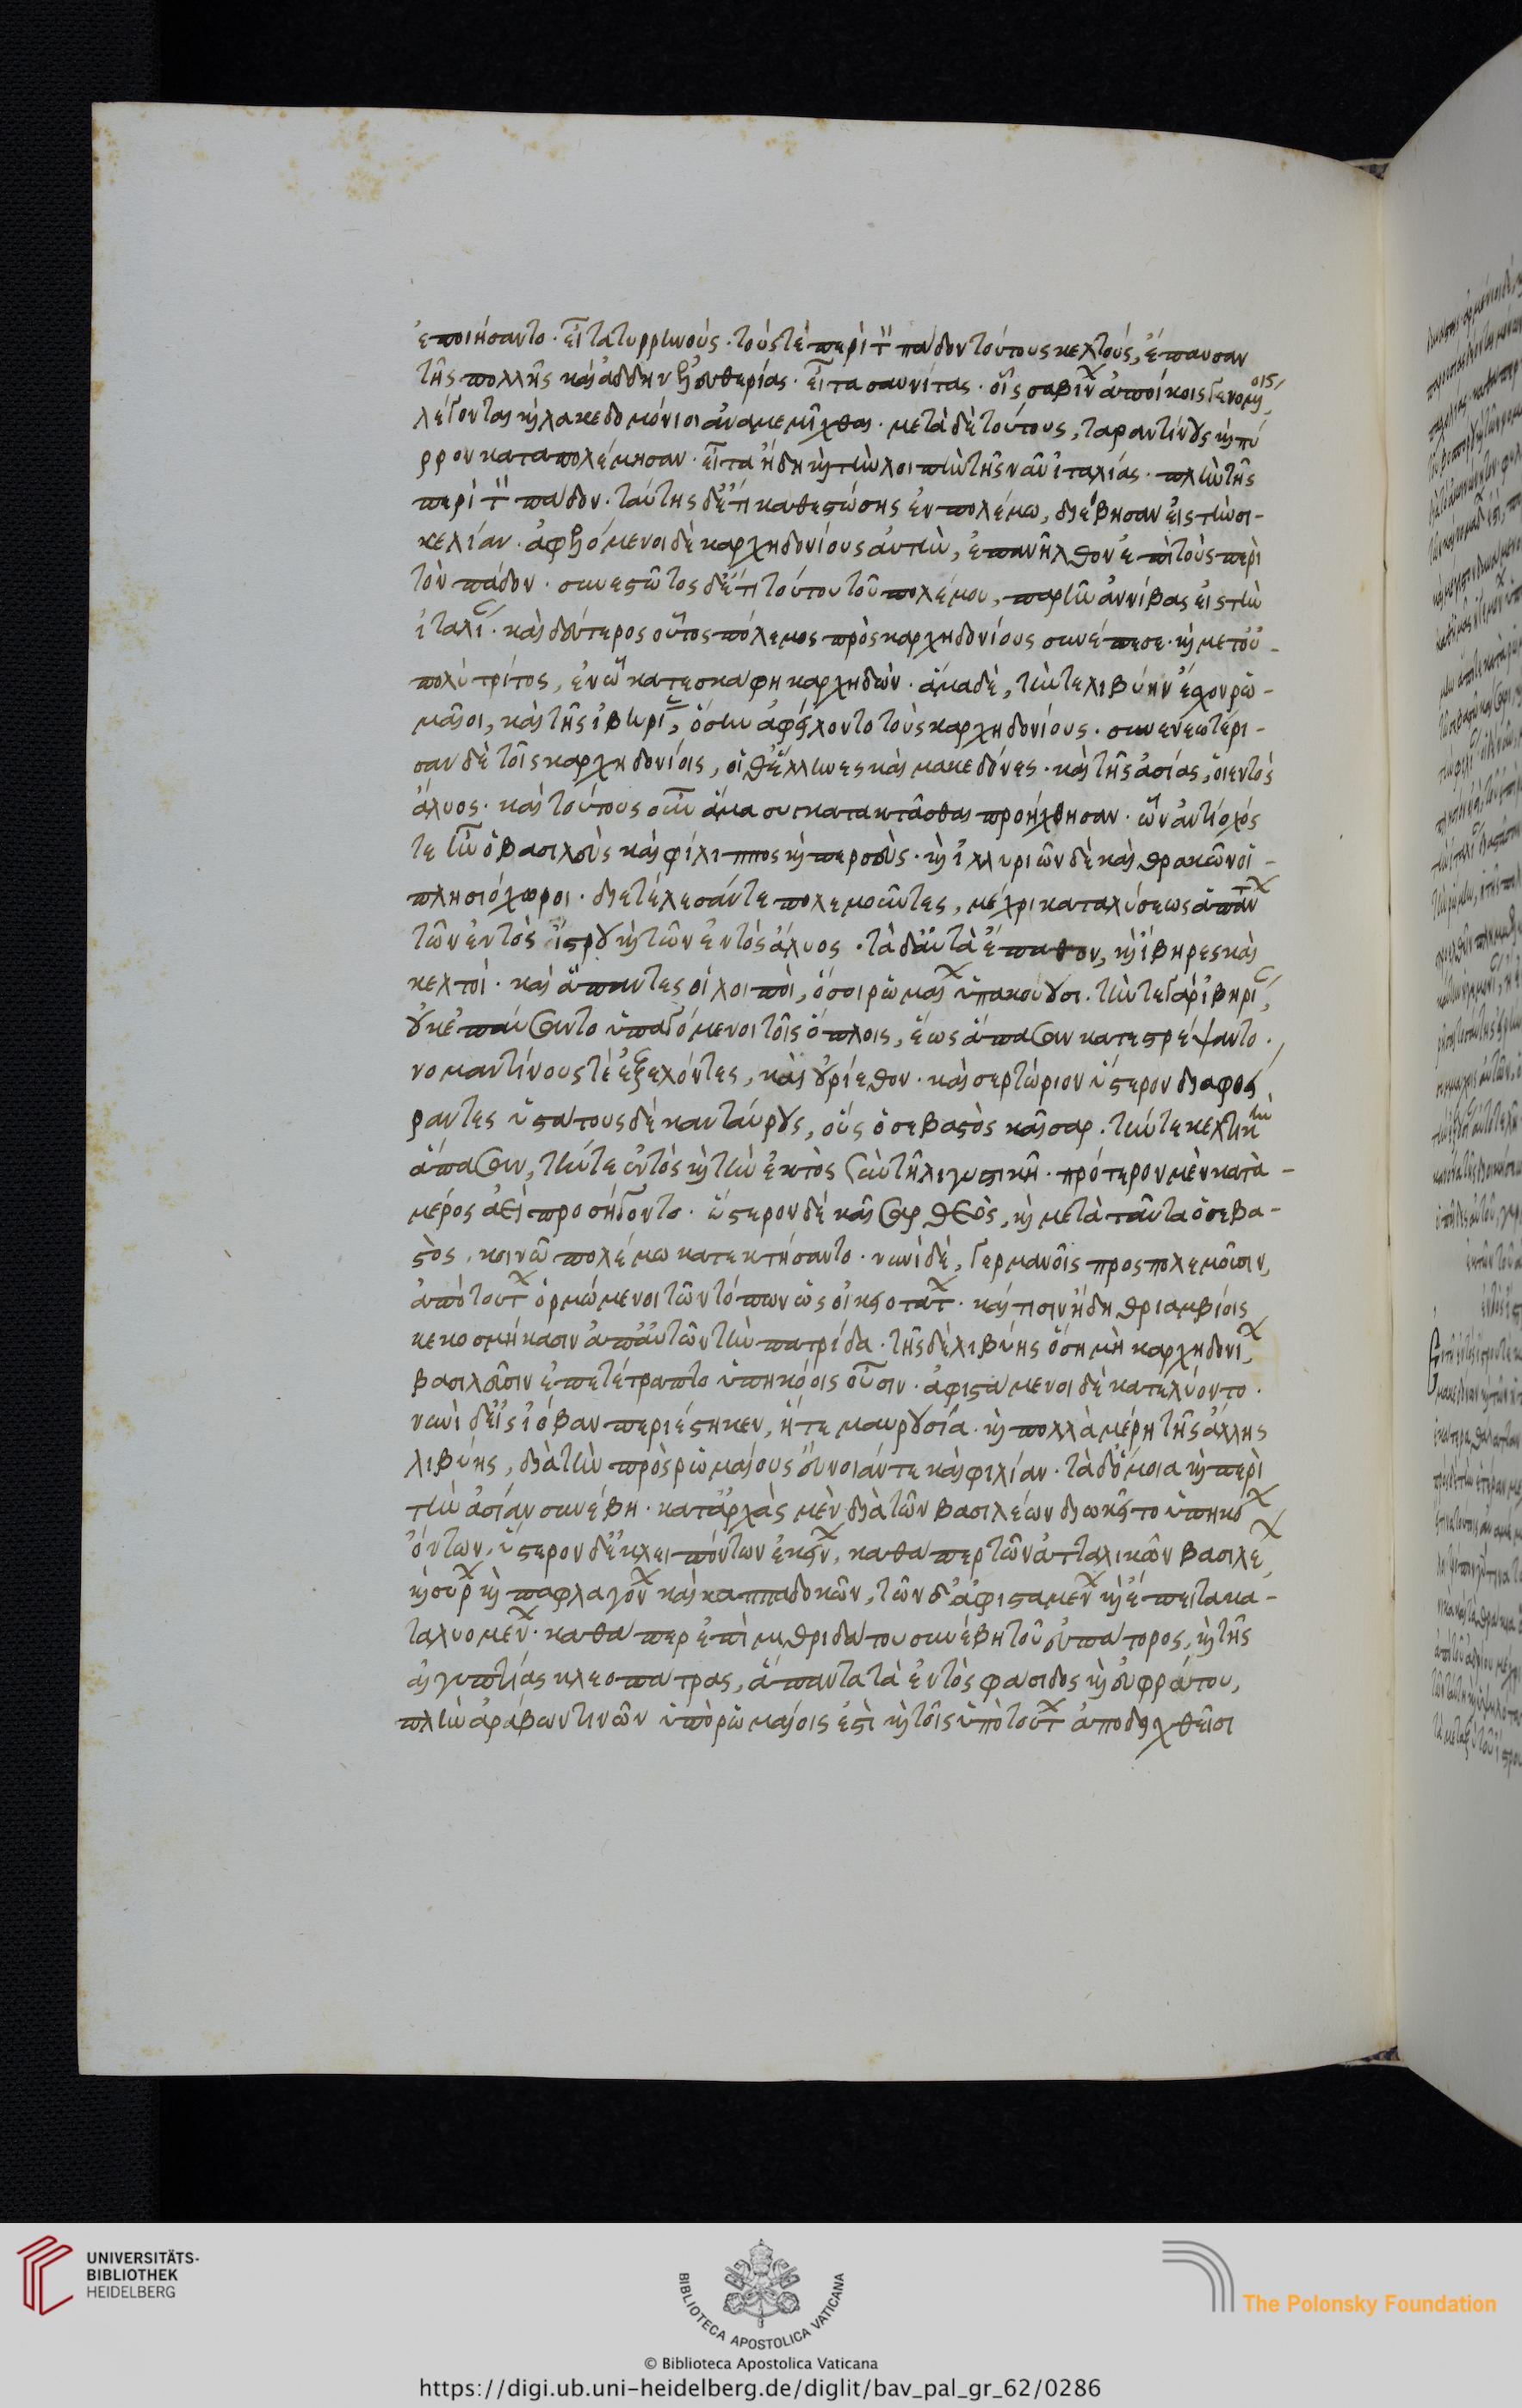 ἐποιήσαντο · εἶτα τυρρηνούς · τούς τε περὶ τ̈ παδον τούτους κελτούς, ἔπαυσαν
τῆς πολλῆς καὶ ἀδδην ἐλευθερίας · εἶτα σαυνίτας · οἷς σαβίν ἀποίκοις γενομένοις
λέγονται κὴ λακεδομόνιοι ἀναμεμῖχθαι · μετὰ δὲ τούτους, ταραντίνους κὴ πύ
ρρον καταπολέμησαν · εἶτα ἤδη κὴ τὴν λοιπὴν τῆς νῦν ἰταλίας · πλὴν τῆς
περὶ τ̈ παδον · ταύτης δ' ἔτι καθεστώσης ἐν πολέμω, διέβησαν εἰς τὴν σι-
κελίαν · ἀφελόμενοι δὲ καρχηδονίους αὐτὴν, ἐπανῆλθον ἐπὶ τοὺς περὶ
τὸν πάδον · συνεστῶτος δ' ἔτι τούτου τοῦ πολέμου, παρῆν ἀννίβας εἰς τὴν
ἰταλί · καὶ δεύτερος οὗτος πόλεμος πρὸς καρχηδονίους συνέπεσε · κὴ μετοὐ-
πολὺ τρίτος, ἐν ᾧ κατεσκαφη καρχηδὼν · ἅμα δὲ, τήν τε λιβύην ἔχον ρω-
μαῖοι, καὶ τῆς ἰβηρί, ὅσην ἀφείλοντο τοὺς καρχηδονίους · συνενεωτέρι-
σαν δὲ τοῖς καρχηδονίοις, οἱ θ' ἕλληνες καὶ μακεδόνες · καὶ τῆς ἀσίας, οἱ ἐντὸς
ἅλυος · καὶ τούτους οὖν ἅμα συγκατακτᾶσθαι προήχθησαν · ὧν ἀντίοχός
τε ἦν ὁ βασιλεὺς καὶ φίλιππος κὴ περσεὺς · κὴ ἰλλυριῶν δὲ καὶ θρακῶν οἱ-
πλησιόχωροι · διετέλεσάν τε πολεμοῦντες, μέχρι καταλύσεως ἁπάν
τῶν ἐντὸς ἴστρου κὴ τῶν ἐντὸς ἅλυος · τὰ δ' αὐτὰ ἔπαθον, κὴ ἴβηρες καὶ
κελτοί · καὶ ἅπαντες οἱ λοιποὶ, ὅσοι ρωμαί ὑπακούουσι. τήν τε γὰρ ἰβηρί,
οὐκ ἐπαύσαντο ὑπαγόμενοι τοῖς ὅπλοις, ἕως ἅπασαν κατεστρέψαντο ·
νομαντίνους τὲ ἐξελόντες, καὶ οὐρίεθον · καὶ σερτώριον ὕστερον διαφθεί
ραντες ὑστάτους δὲ κανταύρους, οὓς ὁ σεβαστὸς καῖσαρ. τήν τε κελτικὴν
ἅπασαν, τήν τε ἐντὸς κὴ τὴν ἐκτὸς σὺν τῆ λιγυστικῆ · πρότερον μὲν κατὰ-
μέρος ἀεὶ προσήγοντο · ὕστερον δὲ καῖσαρ θεὸς, κὴ μετὰ ταῦτα ὁ σεβα-
στὸς, κοινῶ πολέμω κατεκτήσαντο · νυνὶ δὲ, γερμανοῖς προσπολεμοῦσιν,
ἀπὸ τούτ ὁρμώμενοι τῶν τόπων ὡς οἰκειοτάτ · καί τισιν ἤδη θριαμβίοις
κεκοσμήκασιν ἀπ' αὐτῶν τὴν πατρίδα · τῆς δὲ λιβύης ὅση μὴ καρχηδονί,
βασιλεῦσιν ἐπετέτραπτο ὑπηκόοις οὖσιν · ἀφιστάμενοι δὲ κατελύοντο ·
νυνὶ δ' εἰς ἰόβαν περιέστηκεν, ἥ τε μαυρουσία · κὴ πολλὰ μέρη τῆς ἄλλης
λιβύης, διὰ τὴν πρὸς ρωμαίους εὔνοιάν τε καὶ φιλίαν · τὰ δ' ὅμοια κὴ περὶ
τὴν ἀσίαν συνέβη · κατ' ἀρχὰς μὲν διὰ τῶν βασιλέων διωκεῖτο ὑπηκό
όντων, ὕστερον δ' ἐκλειπόντων ἐκείν, καθαπερ τῶν ἀτταλικῶν βασιλέ,
κὴ σύρ κὴ παφλαγόν καὶ καππαδοκῶν, τῶν δ' ἀφισταμέν κὴ ἔπειτα κα-
ταλυομέν · καθαπερ ἐπὶ μιθριδάτου συνέβη τοῦ εὐπάτορος, κὴ τῆς
αἰγυπτίας κλεοπάτρας, ἅπαντα τὰ ἐντὸς φάσιδος κὴ εὐφράτου,
πλὴν ἀράβων τινῶν ὑπὸ ρωμαίοις ἐστὶ κὴ τοῖς ὑπὸ τούτ ἀποδειχθεῖσι
UNIVERSITÄTS-
BIBLIOTHEK
HEIDELBERG
BIBLIOTECA APOSTOLICA VATICANA
The Polonsky Foundation
© Biblioteca Apostolica Vaticana
https://digi.ub.uni-heidelberg.de/diglit/bav_pal_gr_62/0286